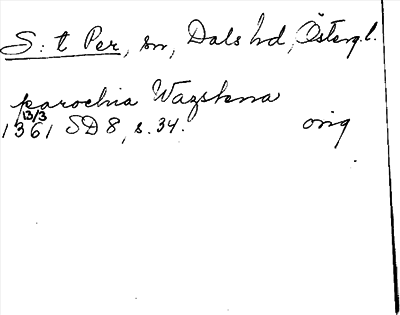 S:t Per, sn, Dals hd, Östergl.
parochia Wazstena
13/3
1361 SD 8, s. 34. orig